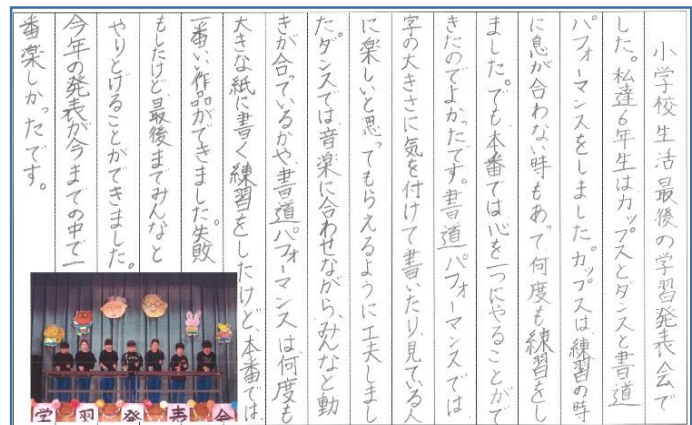 小学校生活最後の学習発表会で
した。私達6年生はカップスとダンスと書道
パフォーマンスをしました。カップスは、練習の時
に息が合わない時もあって何度も練習をし
ました。でも、本番では心を一つにやることがで
きたのでよかったです。書道パフォーマンスでは、
字の大きさに気を付けて書いたり、見ている人
に楽しいと思ってもらえるように工夫しまし
た。ダンスでは、音楽に合わせながら、みんなと動
きが合っているかや、書道パフォーマンスは何度も
大きな紙に書く練習をしたけど、本番では、
一番いい作品ができました。失敗
もしたけど、最後までみんなと
やりとげることができました。
今年の発表が今までの中で一
番楽しかったです。
学習発表会